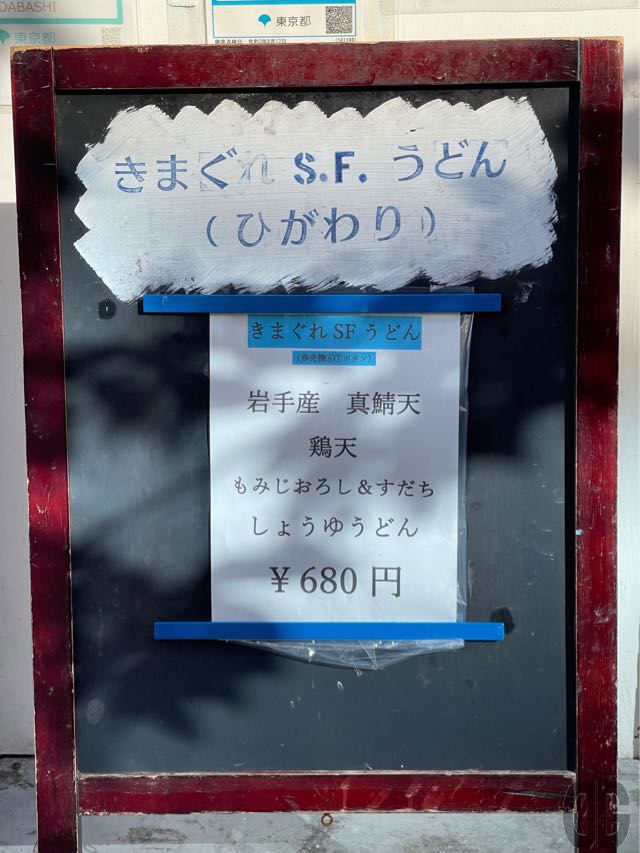 DABASHI
東京都
東京都
きまぐれ S.F. うどん
(ひがわり)
きまぐれSFうどん
(券売機⑥⑦ボタン)
岩手産 真鯖天
鶏天
もみじおろし&すだち
しょうゆうどん
¥680円